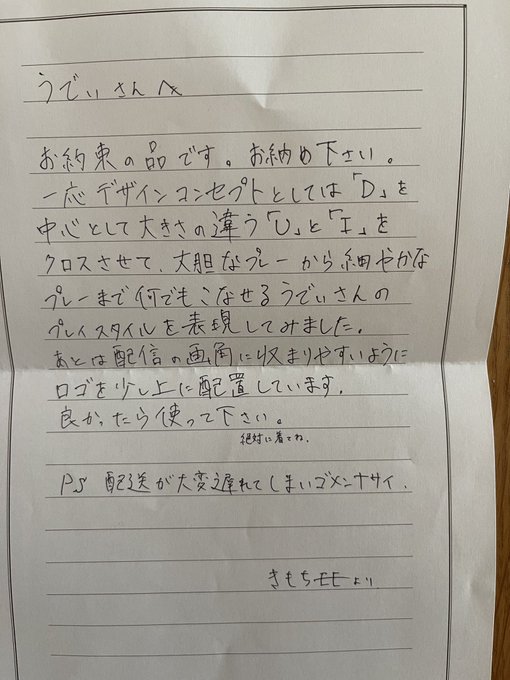 うでぃさんへ
お約束の品です。お納め下さい。
一応デザインコンセプトとしては「D」を
中心として大きさの違う「U」と「I」を
クロスさせて、大胆なプレーから細やかな
プレーまで何でもこなせるうでぃさんの
プレイスタイルを表現してみました。
あとは配信の画角に収まりやすいように
ロゴを少し上に配置しています。
良かったら使って下さい。
絶対に着てね。
PS 配送が大変遅れてしまいゴメンナサイ.
きもちEEより